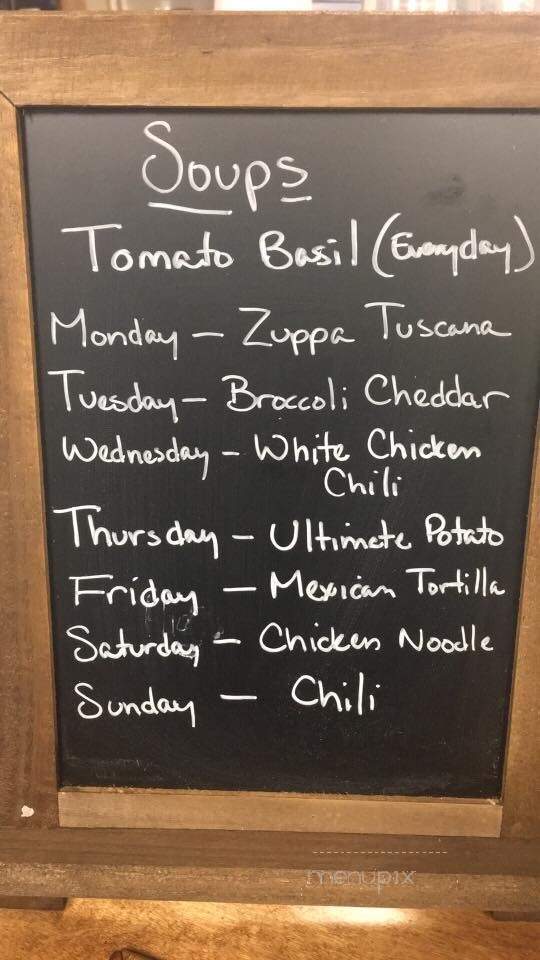 Soups
Tomato Basil (Everyday)
Monday - Zuppa Tuscana
Tuesday - Broccoli Cheddar
Wednesday - White Chicken
Chili
Thursday - Ultimate Potato
Friday - Mexican Tortilla
Saturday - Chicken Noodle
Sunday - Chili
menupix